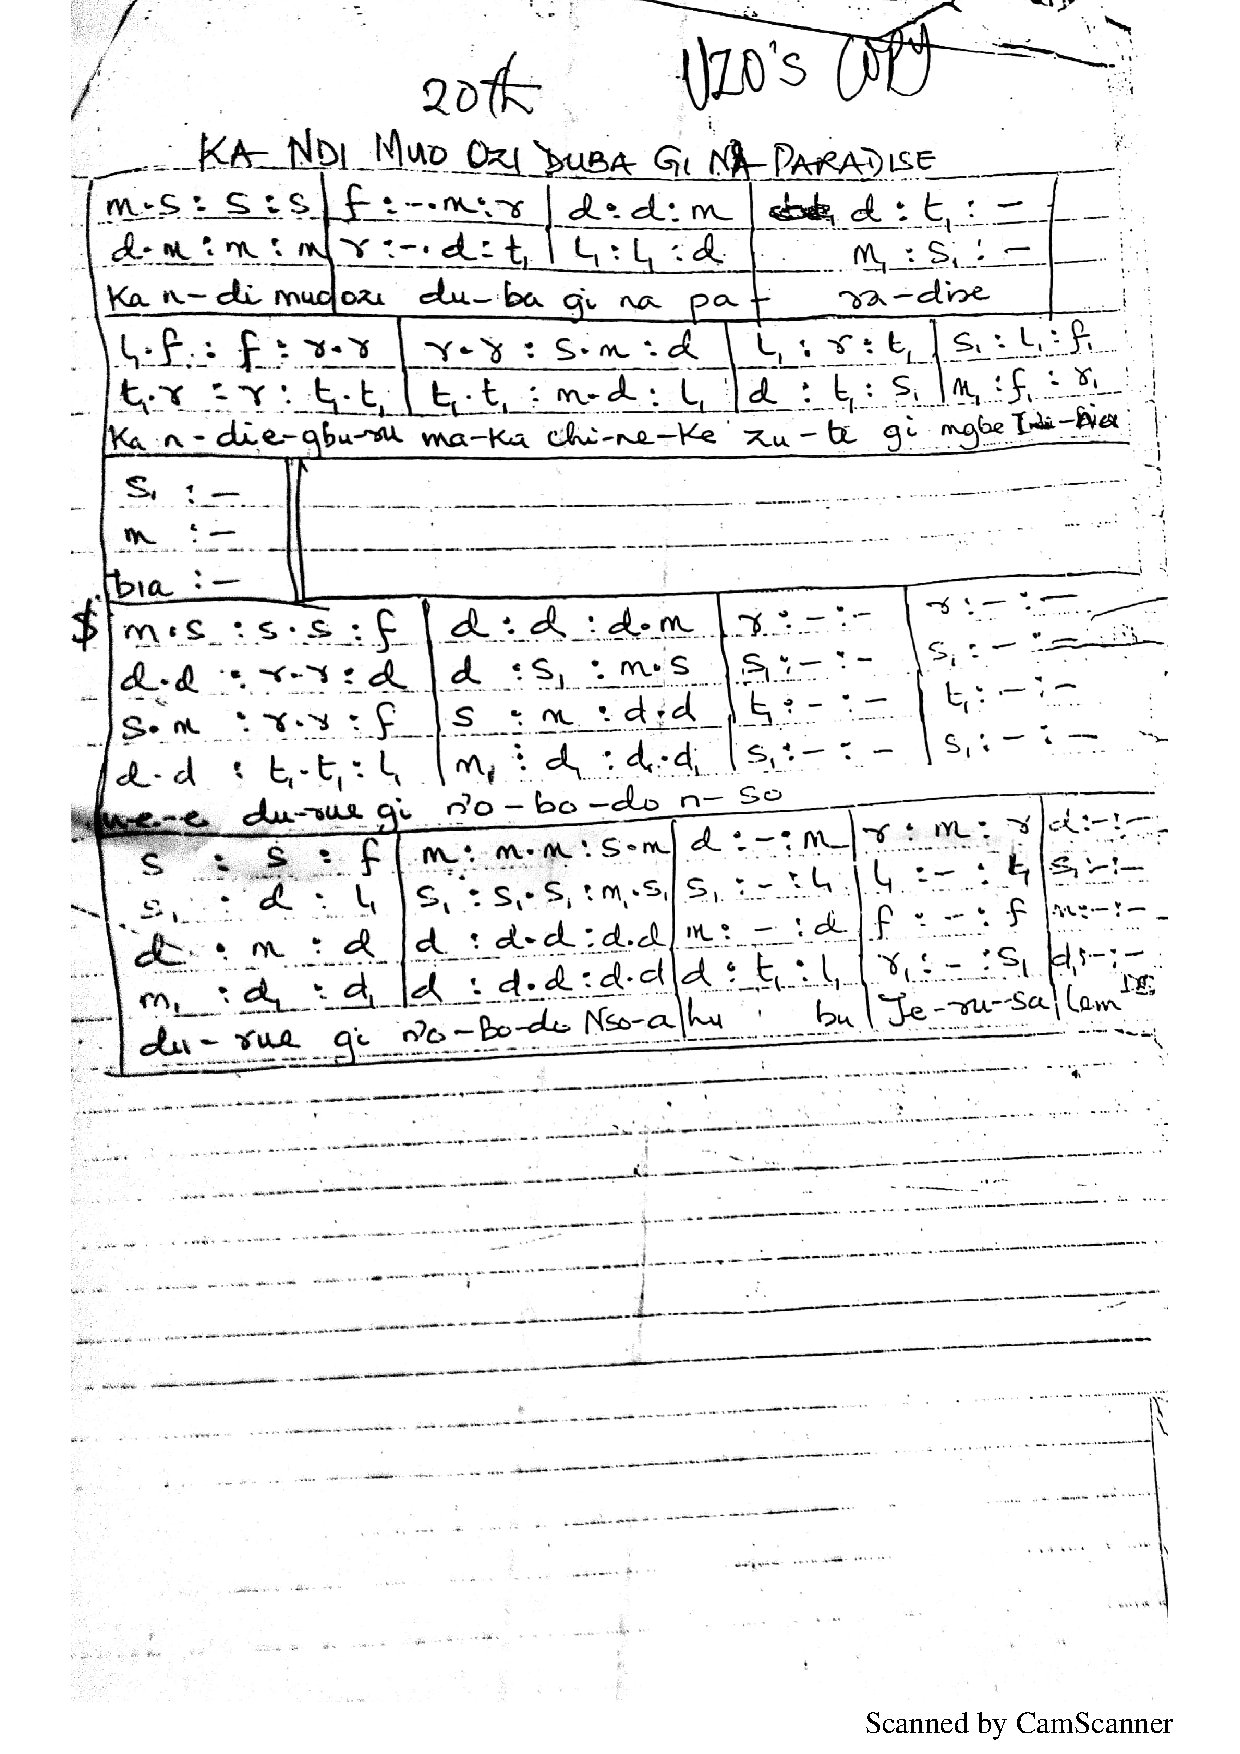 20th UZO'S COPY
KA NDI MUO OZI DUBA GI NA PARADISE
m.s : s : s | f : -.m : r | d : d : m | d : t₁ : -
d.m : m : m | r : -.d : t₁ | l₁ : l₁ : d | m₁ : s₁ : -
Ka n-di muo ozi du-ba gi na pa- ra-dise
l₁.f : f : r.r | r.r : s.m : d | l₁ : r : t₁ | s₁ : l₁ : f₁
t₁.r : r : t₁.t₁ | t₁.t₁ : m.d : l₁ | d : t₁ : s₁ | m₁ : f₁ : r₁
Ka n-die-gbu-ru ma-ka chi-ne-ke zu-te gi mgbe
s₁ : -
m : -
bia : -
$ m.s : s.s : f | d : d : d.m | r : - : - | r : - : -
d.d : r.r : d | d : s₁ : m.s | s₁ : - : - | s₁ : - : -
s.m : r.r : f | s : m : d.d | t₁ : - : - | t₁ : - : -
d.d : t₁.t₁ : l₁ | m₁ : d₁ : d₁.d₁ | s₁ : - : - | s₁ : - : -
we-e du-rue gi n'o-bo-do n-so
s : s : f | m : m.m : s.m | d : - : m | r : m : r | d : - : -
s₁ : d : l₁ | s₁ : s₁.s₁ : m₁.s₁ | s₁ : - : l₁ | l₁ : - : t₁ | s₁ : - : -
d : m : d | d : d.d : d.d | m : - : d | f : - : f | m : - : -
m₁ : d₁ : d₁ | d : d.d : d.d | d : t₁ : l₁ | r₁ : - : s₁ | d₁ : - : -
du-rue gi n'o-Bo-do Nso-a | hu bu | Je-ru-sa | lem
Scanned by CamScanner